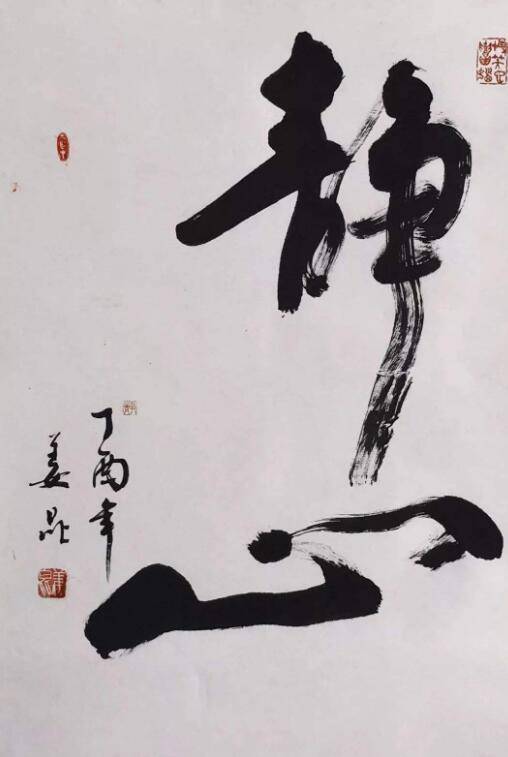 静心
丁酉年
姜昆